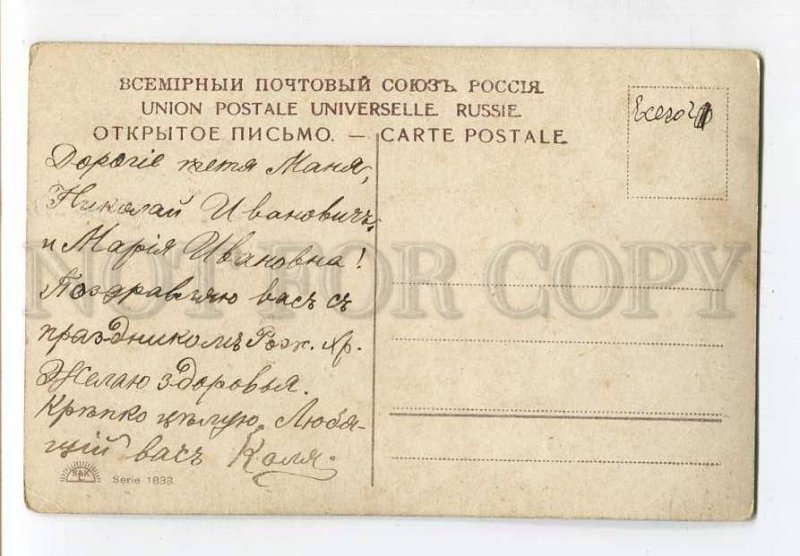 ВСЕМІРНЫЙ ПОЧТОВЫЙ СОЮЗЪ. РОССІЯ.
UNION POSTALE UNIVERSELLE. RUSSIE.
ОТКРЫТОЕ ПИСЬМО. — CARTE POSTALE.
Дорогіе тетя Маня,
Николай Ивановичъ,
и Марія Ивановна!
Поздравляю васъ съ
праздникомъ Рож. Хр.
Желаю здоровья.
Крѣпко цѣлую. Любя-
щій васъ Коля.
Serie 1833
NOT FOR COPY